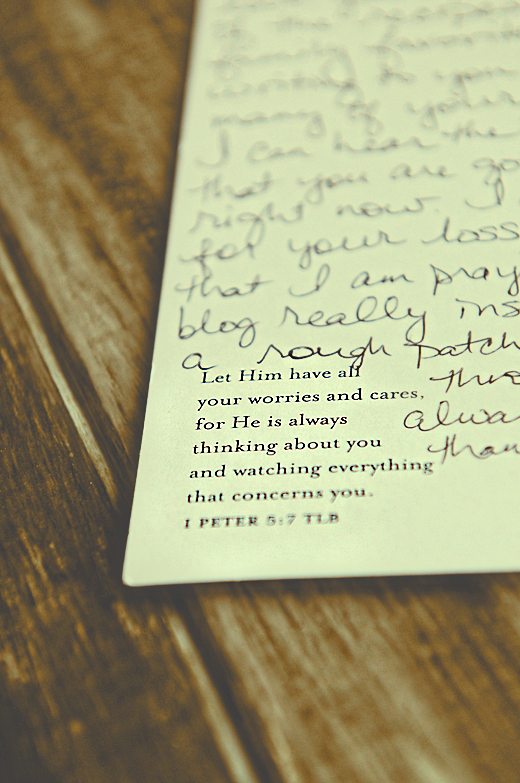 family favorite
writing to you
many of your
I can hear the
that you are go
right now. I
for your loss
that I am pray
blog really ins
a rough patch
Let Him have all
your worries and cares,
for He is always
thinking about you
and watching everything
that concerns you.
I PETER 5:7 TLB
this
alwa
than